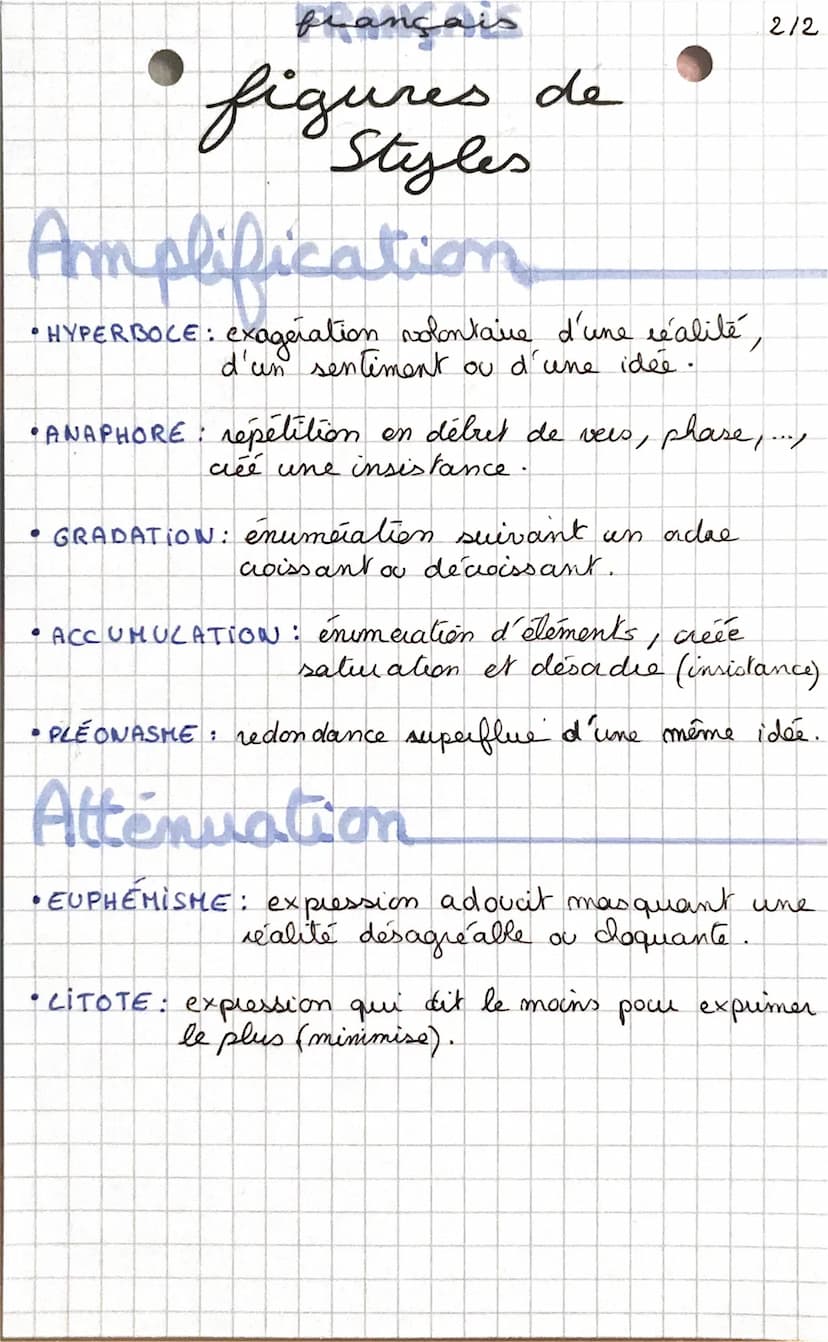 français
2/2
figures de
Styles
Amplification
• HYPERBOLE : exagération volontaire d'une réalité,
d'un sentiment ou d'une idée.
• ANAPHORE : répétition en début de vers, phase, ...,
créé une insistance.
• GRADATION : énumération suivant un ordre
croissant ou décroissant.
• ACCUMULATION : énumération d'éléments, créée
saturation et désordre (insistance)
• PLÉONASME : redondance superflue d'une même idée.
Atténuation
• EUPHÉMISME : expression adoucit masquant une
réalité désagréable ou choquante.
• LITOTE : expression qui dit le moins pour exprimer
le plus (minimise).